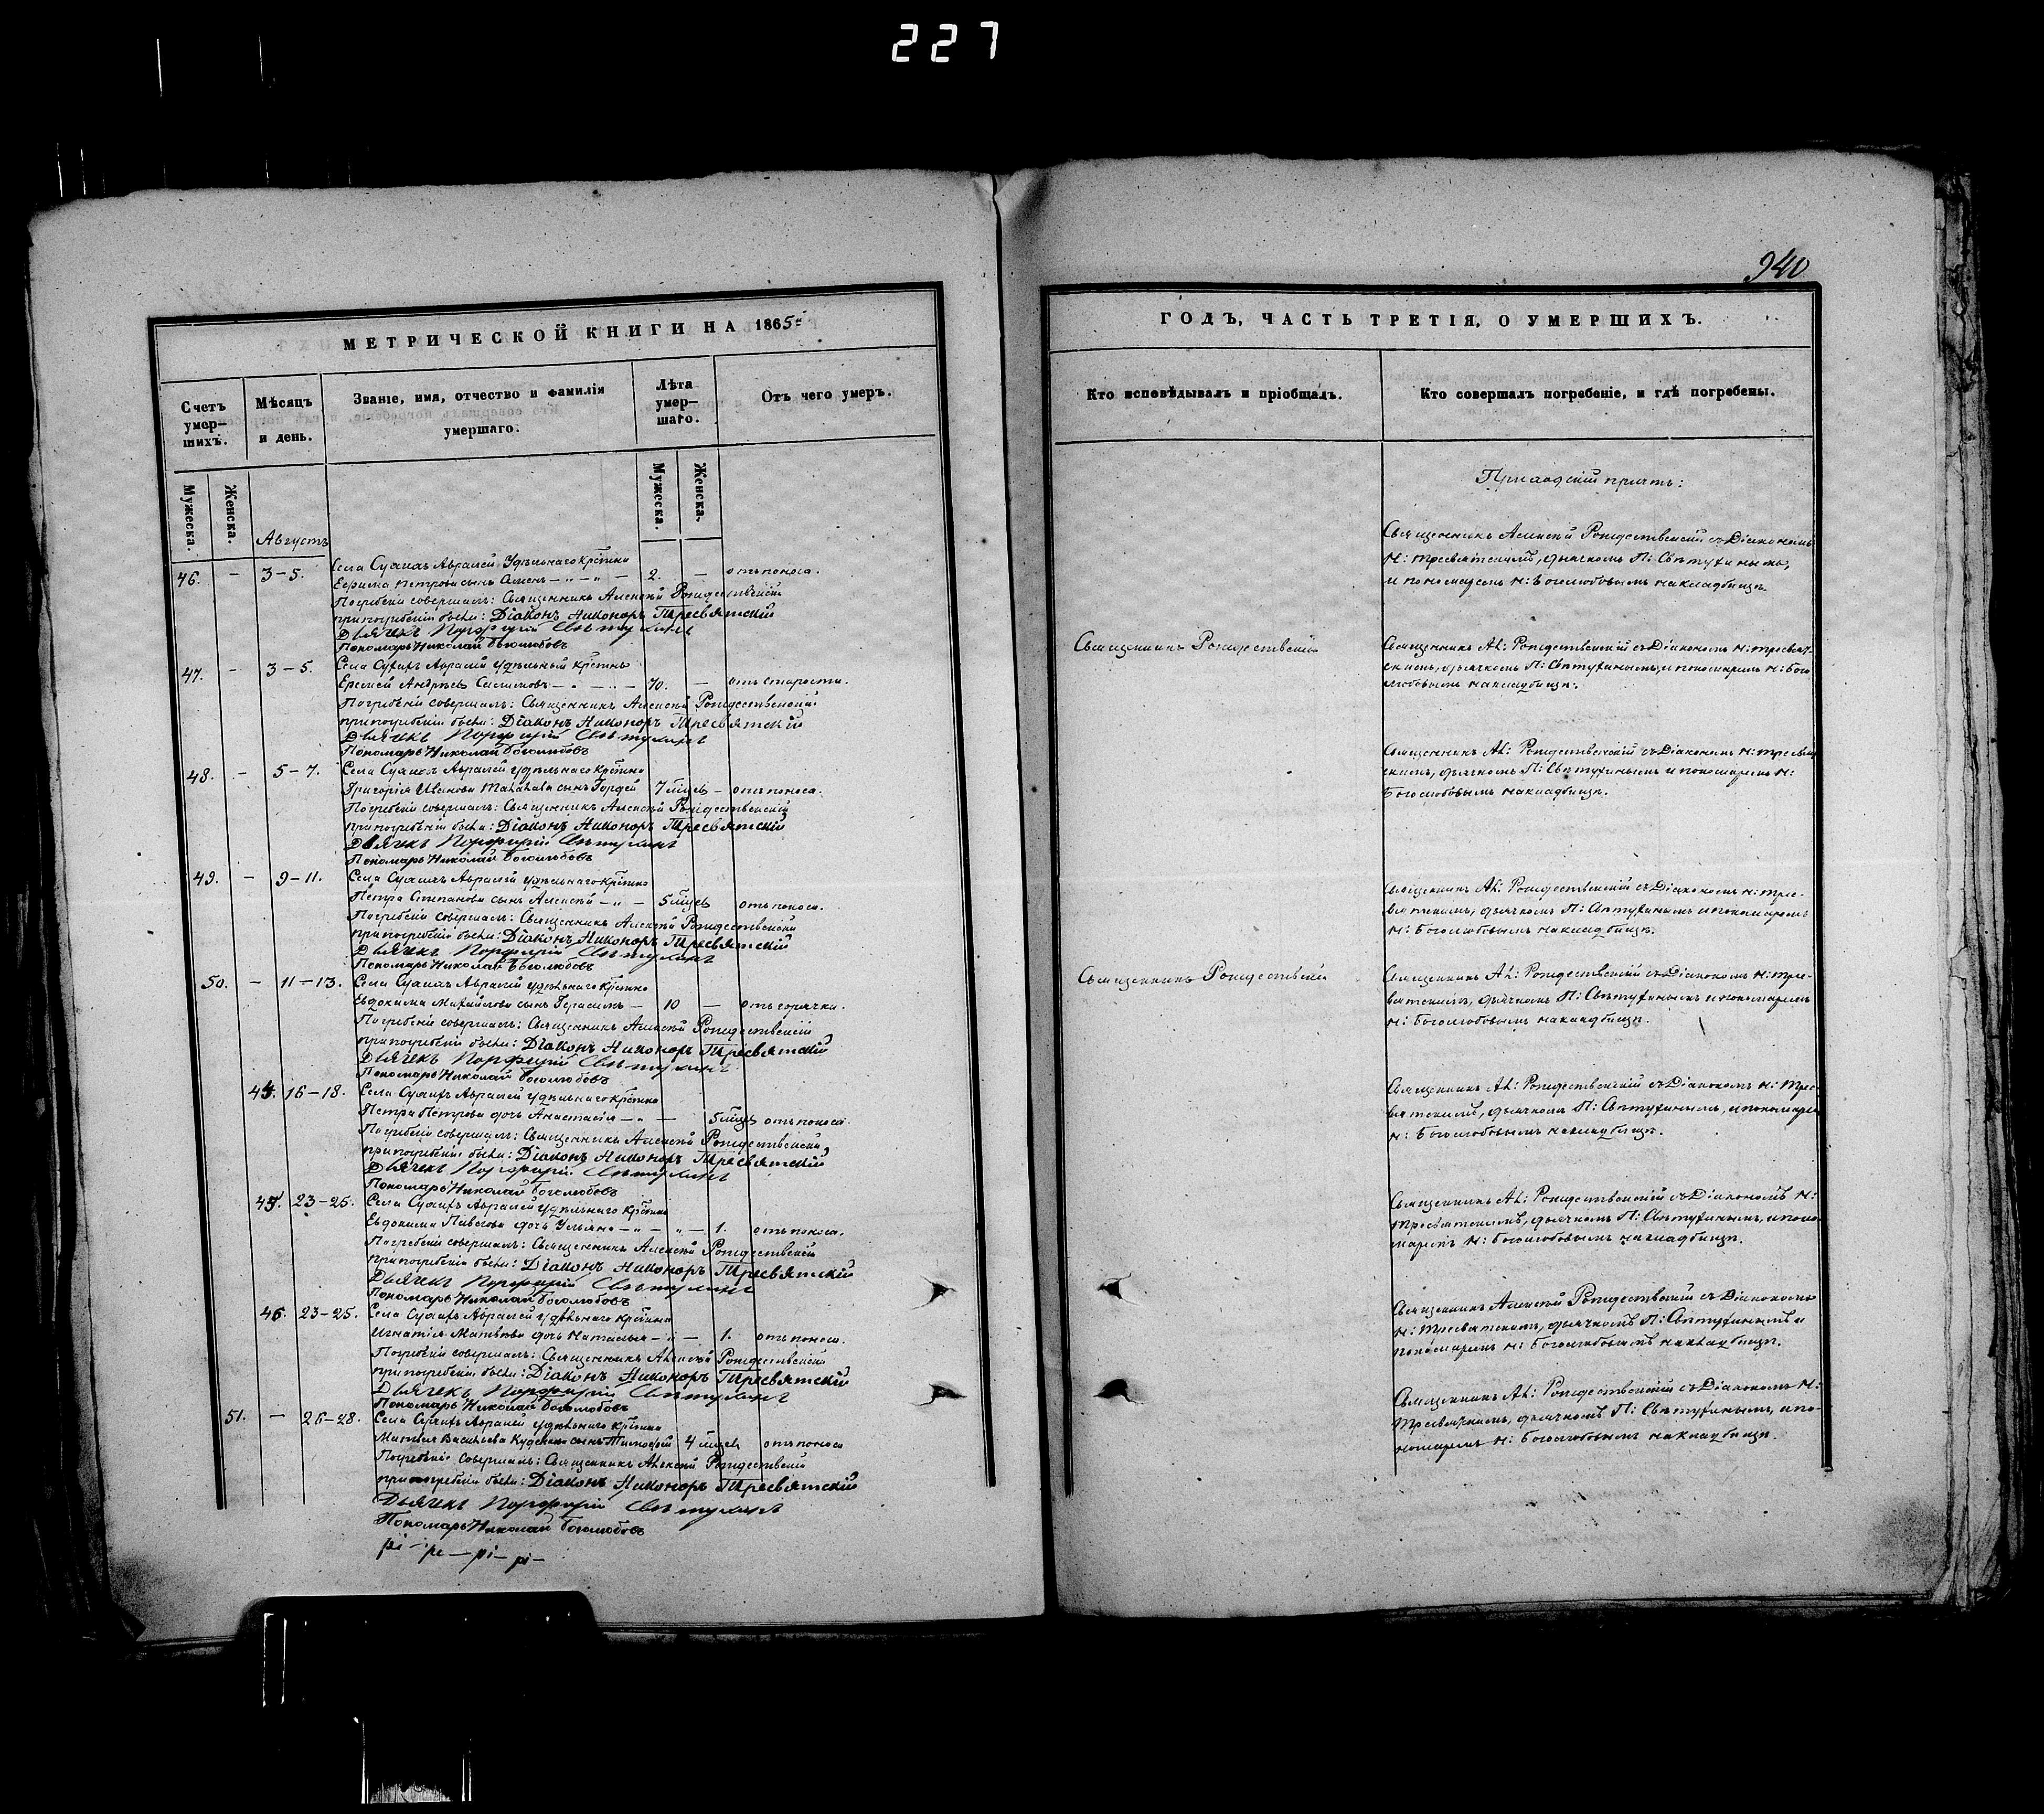 227
940
МЕТРИЧЕСКОЙ КНИГИ НА 1865й
Счетъ умер-шихъ.
Мѣсяцъ и день.
Званіе, имя, отчество и фамилія умершаго.
Лѣта умер-шаго.
Отъ чего умеръ.
Мужеска.
Женска.
Мужеска.
Женска.
Августъ
46. — 3–5. Села Авралей Удѣльнаго
Ефима Петрова сынъ — „ — „ — 2. — отъ поноса.
Погребеніе совершалъ: Священникъ Алексѣй Рождественскій
при погребеніи были: Діаконъ Никоноръ Тресвятскій
Дьячекъ Порфирій Свѣтухинъ
Пономарь Николай Боголюбовъ
47. — 3–5. Села Авралей Удѣльный
Еремей Андреевъ — „ — „ — 70. — отъ старости.
Погребеніе совершалъ: Священникъ Алексѣй Рождественскій
при погребеніи были: Діаконъ Никоноръ Тресвятскій
Дьячекъ Порфирій Свѣтухинъ
Пономарь Николай Боголюбовъ
48. — 5–7. Села Авралей Удѣльнаго
Григорія Иванова сынъ Гордей 7 — отъ поноса.
Погребеніе совершалъ: Священникъ Алексѣй Рождественскій
при погребеніи были: Діаконъ Никоноръ Тресвятскій
Дьячекъ Порфирій Свѣтухинъ
Пономарь Николай Боголюбовъ
49. — 9–11. Села Авралей удѣльнаго
Петра Степанова сынъ Алексѣй — „ — 5 отъ поноса.
Погребеніе совершалъ: Священникъ Алексѣй Рождественскій
при погребеніи были: Діаконъ Никоноръ Тресвятскій
Дьячекъ Порфирій Свѣтухинъ
Пономарь Николай Боголюбовъ
50. — 11–13. Села Авралей удѣльнаго
Евдокима Михайлова сынъ Герасимъ — 10 — отъ горячки.
Погребеніе совершалъ: Священникъ Алексѣй Рождественскій
при погребеніи были: Діаконъ Никоноръ Тресвятскій
Дьячекъ Порфирій Свѣтухинъ
Пономарь Николай Боголюбовъ
44. 16–18. Села Авралей удѣльнаго
Петра Петрова дочь Анастасія — „ — 5 отъ поноса.
Погребеніе совершалъ: Священникъ Алексѣй Рождественскій
при погребеніи были: Діаконъ Никоноръ Тресвятскій
Дьячекъ Порфирій Свѣтухинъ
Пономарь Николай Боголюбовъ
45. 23–25. Села Авралей удѣльнаго
Евдокима Павлова дочь Ульяна — „ — „ — 1. отъ поноса.
Погребеніе совершалъ: Священникъ Алексѣй Рождественскій
при погребеніи были: Діаконъ Никоноръ Тресвятскій
Дьячекъ Порфирій Свѣтухинъ
Пономарь Николай Боголюбовъ
46. 23–25. Села Авралей удѣльнаго
Игнатія Матвѣева дочь Наталья — „ — 1. отъ поноса.
Погребеніе совершалъ: Священникъ Алексѣй Рождественскій
при погребеніи были: Діаконъ Никоноръ Тресвятскій
Дьячекъ Порфирій Свѣтухинъ
Пономарь Николай Боголюбовъ
51. — 26–28. Села Авралей удѣльнаго
Матвея Васильева сынъ Тимофей 4 отъ поноса
Погребеніе совершалъ: Священникъ Алексѣй Рождественскій
при погребеніи были: Діаконъ Никоноръ Тресвятскій
Дьячекъ Порфирій Свѣтухинъ
Пономарь Николай Боголюбовъ
ГОДЪ, ЧАСТЬ ТРЕТІЯ, О УМЕРШИХЪ.
Кто исповѣдывалъ и пріобщалъ.
Кто совершалъ погребеніе, и гдѣ погребены.
Приходскій причтъ:
Священникъ Алексѣй Рождественскій съ Діакономъ
Н: Тресвятскимъ, дьячкомъ П: Свѣтухинымъ,
и пономаремъ Н: Боголюбовымъ на кладбищѣ.
Священникъ Рождественскій
Священникъ Ал: Рождественскій съ Діакономъ Н: Тресвят-
скимъ, дьячкомъ П: Свѣтухинымъ, и пономаремъ Н: Бого-
любовымъ на кладбищѣ.
Священникъ Ал: Рождественскій съ Діакономъ Н: Тресвят-
скимъ, дьячкомъ П: Свѣтухинымъ и пономаремъ Н:
Боголюбовымъ на кладбищѣ.
Священникъ Ал: Рождественскій съ Діакономъ Н: Тре-
святскимъ, дьячкомъ П: Свѣтухинымъ и пономаремъ
Н: Боголюбовымъ на кладбищѣ.
Священникъ Рождественскій
Священникъ Ал: Рождественскій съ Діакономъ Н: Тре-
святскимъ, дьячкомъ П: Свѣтухинымъ и пономаремъ
Н: Боголюбовымъ на кладбищѣ.
Священникъ Ал: Рождественскій съ Діакономъ Н: Трес-
вятскимъ, дьячкомъ П: Свѣтухинымъ, и пономаремъ
Н: Боголюбовымъ на кладбищѣ.
Священникъ Ал: Рождественскій съ Діакономъ Н:
Тресвятскимъ, дьячкомъ П: Свѣтухинымъ, и поно-
маремъ Н: Боголюбовымъ на кладбищѣ.
Священникъ Алексѣй Рождественскій съ Діакономъ
Н: Тресвятскимъ, дьячкомъ П: Свѣтухинымъ и
пономаремъ Н: Боголюбовымъ на кладбищѣ.
Священникъ Ал: Рождественскій съ Діакономъ Н:
Тресвятскимъ, дьячкомъ П: Свѣтухинымъ, и по-
номаремъ Н: Боголюбовымъ на кладбищѣ.